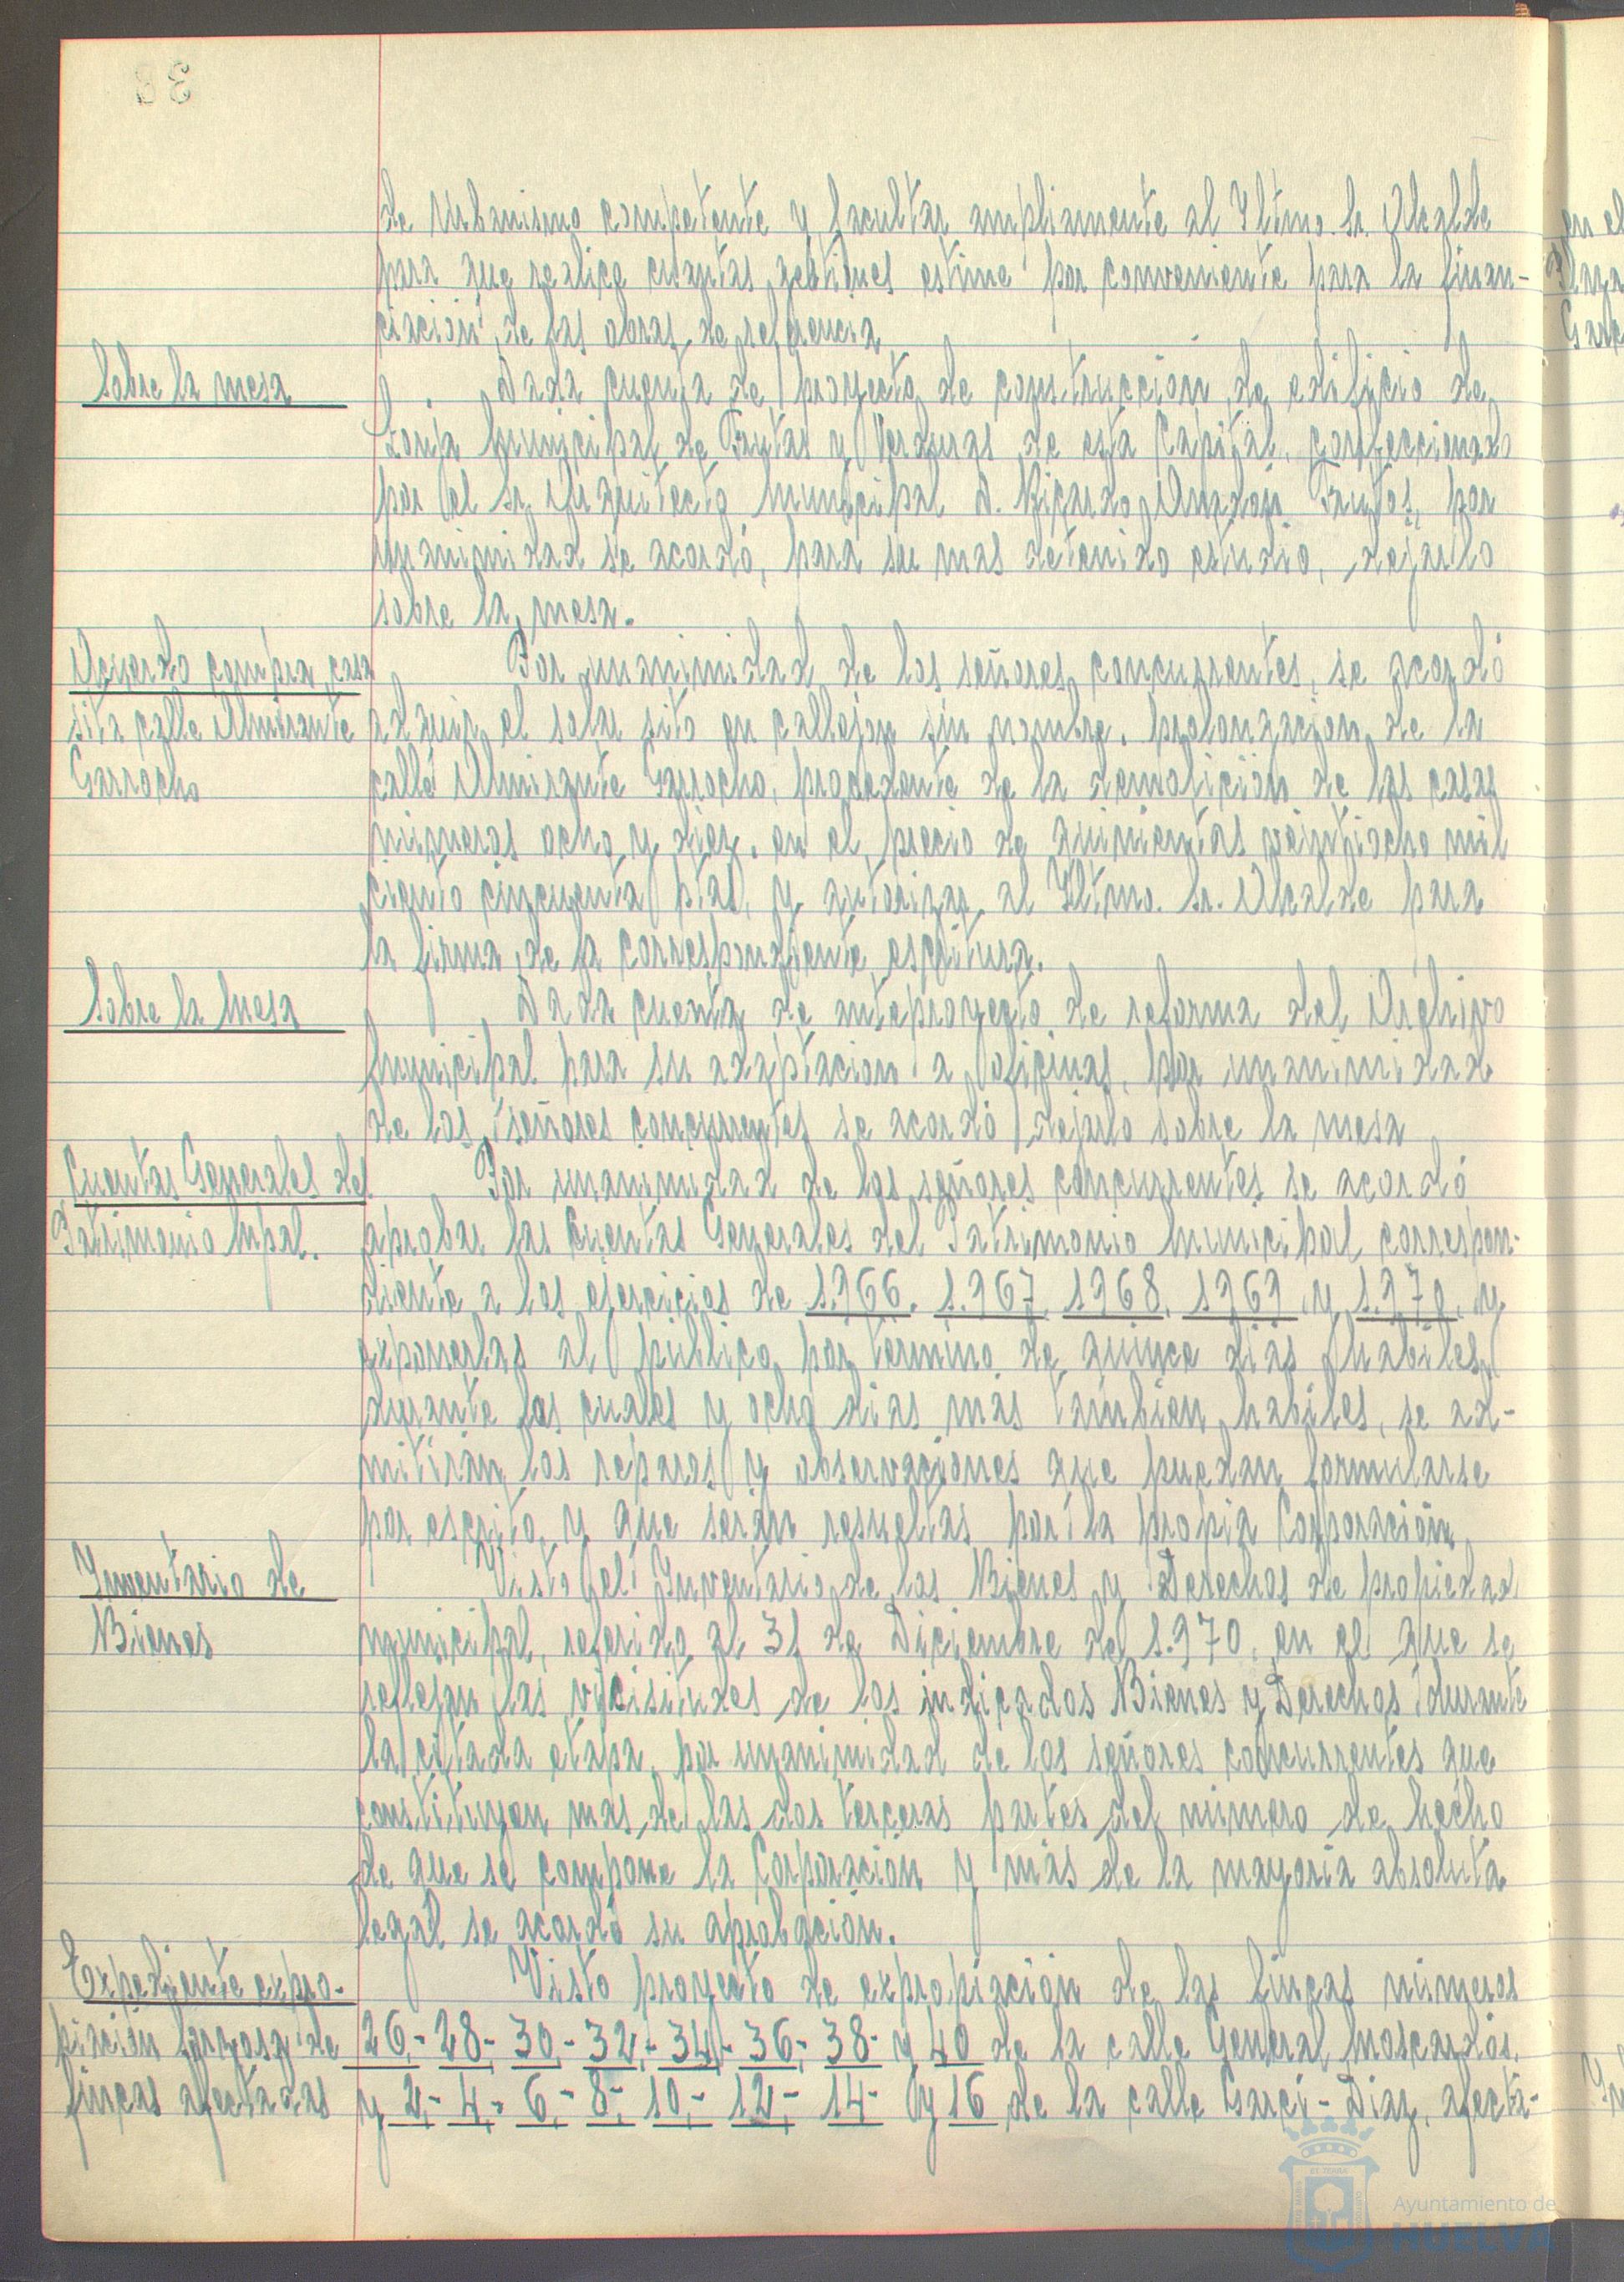 de Urbanismo competente y facultar ampliamente al Iltmo. Sr. Alcalde
para que realice cuantas gestiones estime por conveniente para la finan-
ciación de las obras de referencia
Sobre la mesa
Dada cuenta de proyecto de construcción de edificio de
Lonja Municipal de Frutas y Verduras de esta Capital, confeccionado
por el Sr. Arquitecto Municipal D. Ricardo Anadon Frutos, por
unanimidad se acordó, para su mas detenido estudio, dejarlo
sobre la mesa.
Acuerdo compra casa
sita calle Almirante
Garrocho
Por unanimidad de los señores concurrentes, se acordó
adquirir el solar sito en callejon sin nombre, prolongacion de la
calle Almirante Garrocho, procedente de la demolición de las casas
números ocho y diez, en el precio de quinientas veintiocho mil
ciento cincuenta ptas, y autorizar al Iltmo. Sr. Alcalde para
la firma de la correspondiente escritura.
Sobre la Mesa
Dada cuenta de anteproyecto de reforma del Archivo
Municipal para su adaptacion a oficinas, por unanimidad
de los señores concurrentes se acordó dejarlo sobre la mesa
Cuentas Generales del
Patrimonio Mpal.
Por unanimidad de los señores concurrentes se acordó
aprobar las Cuentas Generales del Patrimonio Municipal correspon-
diente a los ejercicios de 1.966, 1.967, 1968, 1969 y 1.970, y
exponerlas al público por termino de quince dias habiles,
durante los cuales y ocho dias mas tambien habiles, se ad-
mitiran los reparos y observaciones que puedan formularse
por escrito, y que seran resueltas por la propia Corporación
Inventario de
Bienes
Visto el Inventario de los Bienes y Derechos de propiedad
municipal, referido al 31 de Diciembre de 1.970, en el que se
reflejan las vicisitudes de los indicados Bienes y Derechos durante
la citada etapa, por unanimidad de los señores concurrentes que
constituyen mas de las dos terceras partes del número de hecho
de que se compone la Corporación y más de la mayoria absoluta
legal se acordó su aprobación.
Expediente expro-
piación forzosa de
fincas afectadas
Visto proyecto de expropiación de las fincas números
26,- 28- 30,- 32,- 34,- 36,- 38- y 40 de la calle General Moscardós,
y 2,- 4,- 6,- 8,- 10,- 12,- 14- y 16 de la calle Garci-Diaz, afecta-
Ayuntamiento de
HUELVA